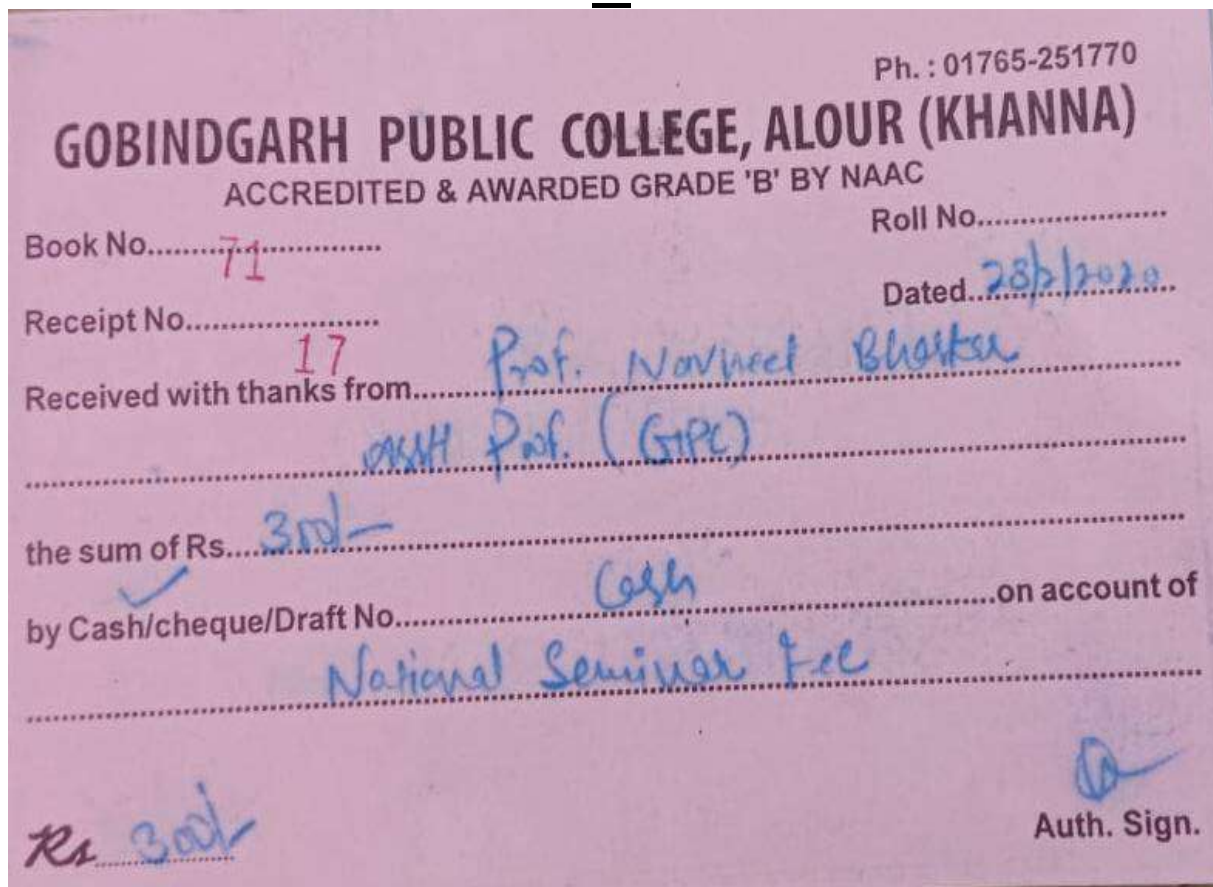 Ph. : 01765-251770
GOBINDGARH PUBLIC COLLEGE, ALOUR (KHANNA)
ACCREDITED & AWARDED GRADE 'B' BY NAAC
Roll No.......................
Book No........................... 71
Dated..28/2/2020
Receipt No...................... 17
Received with thanks from..... Prof. Navneet Bhaskar
Asstt Prof. (GPC)
the sum of Rs....300/-
by Cash/cheque/Draft No........ Cash ........on account of
National Seminar Fee
Rs 300/-
Auth. Sign.